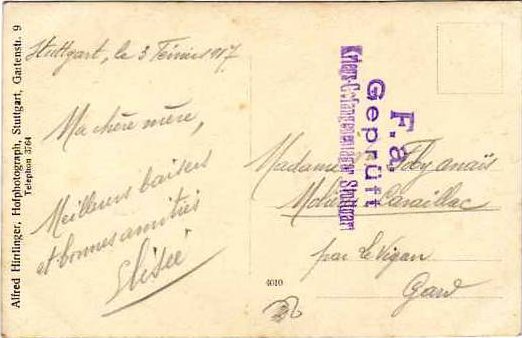 Alfred Hirrlinger, Hofphotograph, Stuttgart, Gartenstr. 9
Telephon 3764
Stuttgart, le 3 Février 1917
Ma chère mère,
Meilleurs baisers
et bonnes amitiés
Elisée
F. a.
Geprüft
Kriegs-Gefangenenlager Stuttgart
Madame
anaïs
Lavaillac
par Le Vigan
Gard
4010